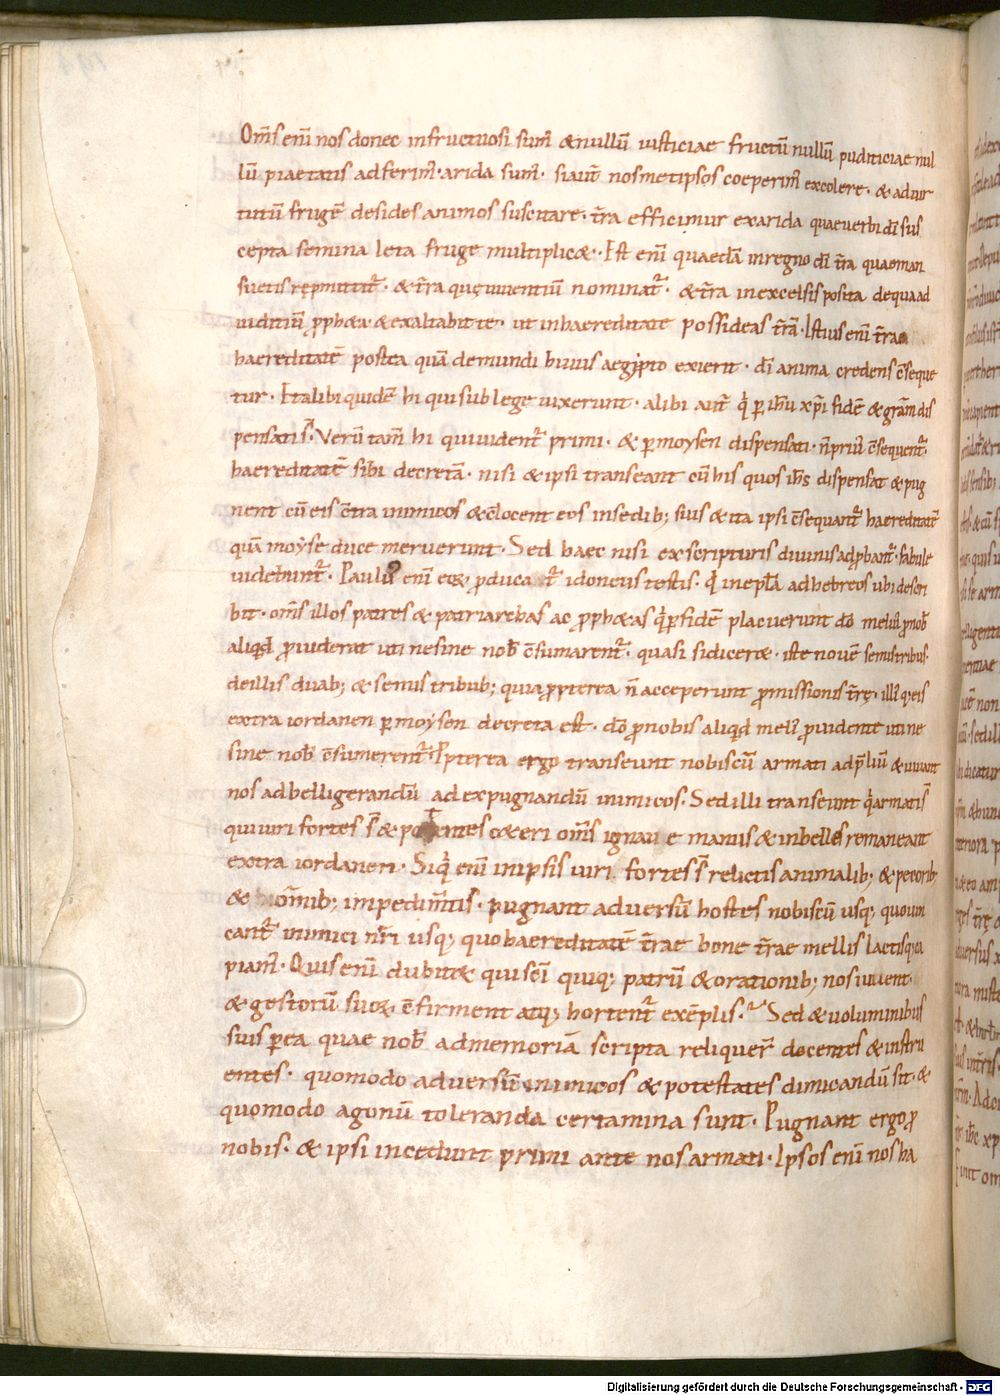 Om̄s enī nos donec infructuosi sum̄ & nullū iusticiae fructū nullū pudiciciae nul
lū piaetatis adferim̄· arida sum̄· siaut̄ nosmetipsos coeperim̄ excolere· & aduir
tutū frugē desides animos suscitare· t̄ra efficimur exarida quae uerbi dī sus
cepta semina leta fruge multiplic&· Est enī quaedā inregno dī t̄ra quae man
suetis rępmittit̄· & t̄ra quę uiuentiū nominat̄· & t̄ra inexcelsis posita dequa ad
iuditiū ꝓph&a & exaltabit te· ut inhaereditate possideas t̄rā· Istius enī t̄rae
haereditatē postea quā demundi huius aegypto exierit· dī anima credens c̄seque
tur· Et alibi quidē hi qui sub lege uixerunt· alibi aut̄ q̇ ꝑ ih̄u xp̄i fidē & grām dis
pensatis̄· Verū tam̄ hi qui uident̄ primi· & ꝑ moysen dispensati· n̄ priꝰ c̄sequent̄
haereditatē sibi decretā· nisi & ipsi transeant cū his quos ih̄s dispensat & pug
nent cū eis c̄tra inimicos & c̄locent eos insedib; suis & ita ipsi c̄sequant̄ haereditatē
quā moyse duce meruerunt· Sed haec nisi exscripturis diuinis adꝓbant̄· fabulę
uidebunt̄· Paulus enī eoꝝ ꝓducat̄ idoneus testis· q̇ inep̄la adhebreos ubi descri
bit· om̄s illos patres & patriarchas ac ꝓph&as q̇ ꝑ fidē placuerunt dō meliꝰ ꝓ nob̄
aliqd̄ ꝓuiderat uti nesine nob̄ c̄sumarent̄· quasi sidicer&· iste nouē semis tribus·
deillis duab; & semis tribub; quia ꝓpterea n̄ acceperunt ꝓmissionis t̄rę· illi q; eis
extra iordanen ꝑ moysen decreta est· dō ꝓnobis aliqd̄ meliꝰ ꝓuidente uti ne
sine nob̄ c̄sumerent̄· Ꝓpterea ergo transeunt nobiscū armati adp̄liū & iuuant
nos adbelligerandū ad expugnandū inimicos· Sed illi transeunt q̇ armatis̄
qui uiri fortes s̄ & potentes c&eri om̄s ignauę manus & inbelles remaneant
extra iordanen· Siq̇ enī inipsis uiri fortes s̄ relictis animalib; & pecorib;
& omīnib; impedim̄tis· pugnant aduersū hostes nobiscū usq; quo uin
cant̄ inimici n̄ri usq; quo haereditatē t̄rae bone t̄rae mellis lactisq; ca
piam̄· Quis enī dubit& qui sc̄i quiq; patrū & orationib; nos iuuent·
& gestorū suoꝝ c̄firment atq; hortent̄ exēplis· Sed & uoluminibus
suis ꝑ ea quae nob̄ admemoriā scripta reliquer̄ docentes & instru
entes· quomodo aduersū inimicos & potestates dimicandū sit· &
quomodo agonū toleranda certamina sunt· Pugnant ergo ꝓ
nobis· & ipsi incedunt primi ante nos armati· Ipsos enī nos ha